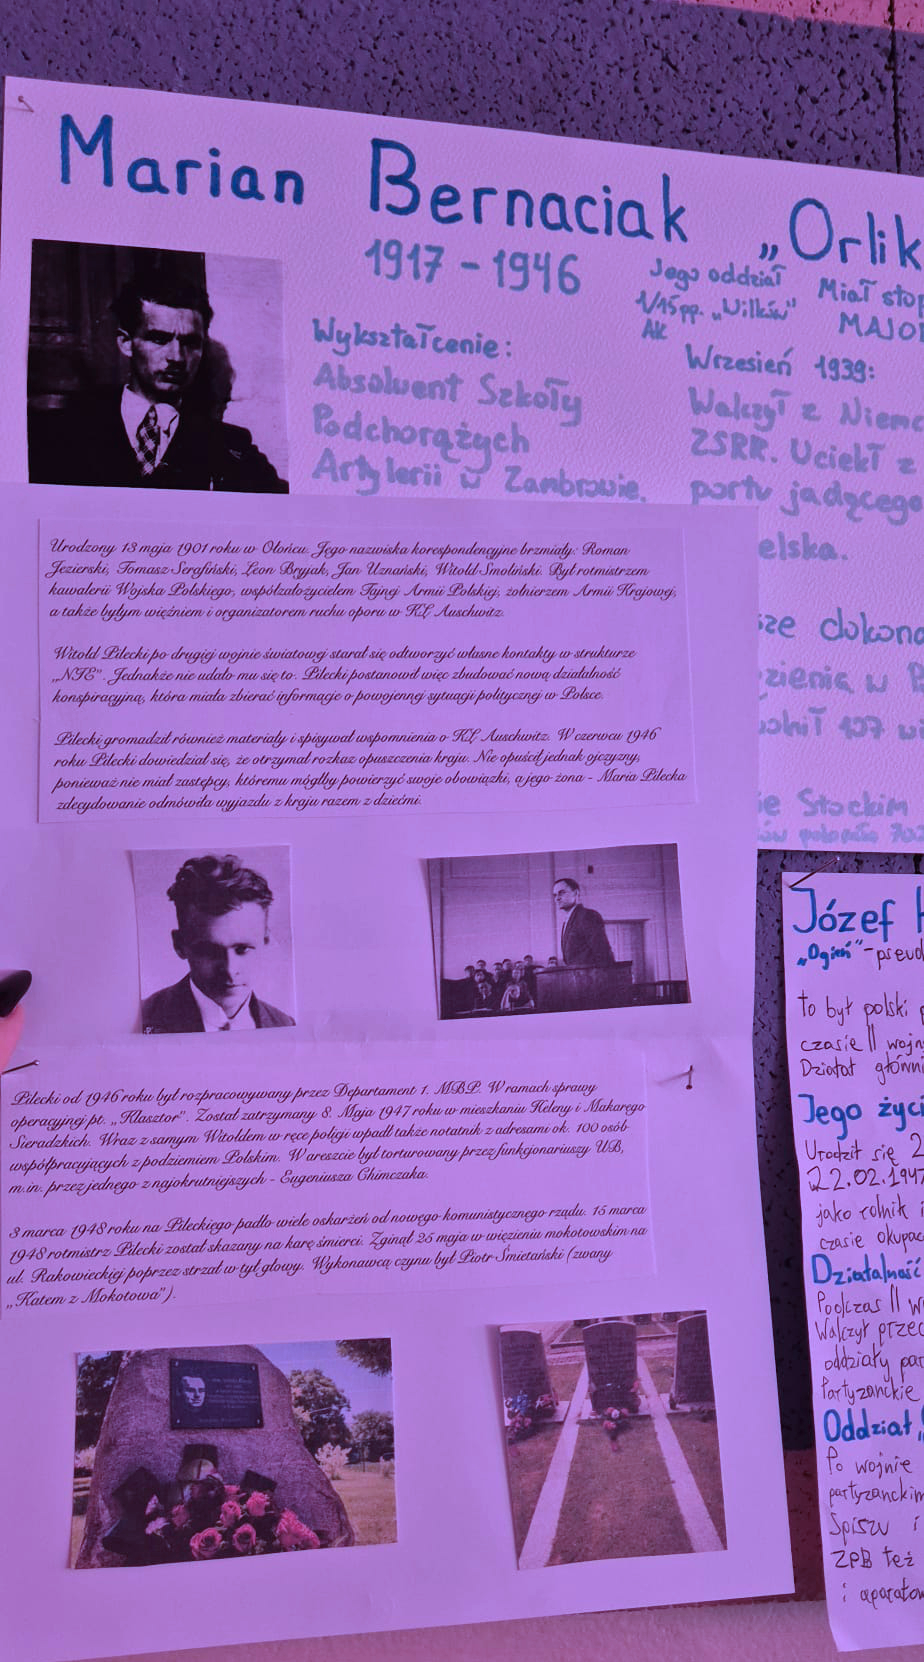 Marian Bernaciak „Orlik
1917 - 1946
Wykształcenie:
Absolwent Szkoły
Podchorążych
Artylerii w Zambrowie.
Jego oddział
1/15pp. „Wilków"
AK
Miał stop
MAJOR
Wrzesień 1939:
Walczył z Niemc
ZSRR. Uciekł z
portu jadącego
elska.
sze dokona
zienia w P
olnił 107 wi
ie Stockim
Urodzony 13 maja 1901 roku w Ołońcu. Jego nazwiska korespondencyjne brzmiały: Roman
Jezierski, Tomasz Serafiński, Leon Bryjak, Jan Uznański, Witold Smoliński. Był rotmistrzem
kawalerii Wojska Polskiego, współzałożycielem Tajnej Armii Polskiej, żołnierzem Armii Krajowej,
a także byłym więźniem i organizatorem ruchu oporu w KL Auschwitz.
Witold Pilecki po drugiej wojnie światowej starał się odtworzyć własne kontakty w strukturze
„NIE". Jednakże nie udało mu się to. Pilecki postanowił więc zbudować nową działalność
konspiracyjną, która miała zbierać informacje o powojennej sytuacji politycznej w Polsce.
Pilecki gromadził również materiały i spisywał wspomnienia o KL Auschwitz. W czerwcu 1946
roku Pilecki dowiedział się, że otrzymał rozkaz opuszczenia kraju. Nie opuścił jednak ojczyzny,
ponieważ nie miał zastępcy, któremu mógłby powierzyć swoje obowiązki, a jego żona - Maria Pilecka
zdecydowanie odmówiła wyjazdu z kraju razem z dziećmi.
Pilecki od 1946 roku był rozpracowywany przez Departament 1. MBP. W ramach sprawy
operacyjnej pt. „Klasztor". Został zatrzymany 8. Maja 1947 roku w mieszkaniu Heleny i Makarego
Sieradzkich. Wraz z samym Witoldem w ręce policji wpadł także notatnik z adresami ok. 100 osób
współpracujących z podziemiem Polskim. W areszcie był torturowany przez funkcjonariuszy UB,
m.in. przez jednego z najokrutniejszych - Eugeniusza Chimczaka.
3 marca 1948 roku na Pileckiego padło wiele oskarżeń od nowego komunistycznego rządu. 15 marca
1948 rotmistrz Pilecki został skazany na karę śmierci. Zginął 25 maja w więzieniu mokotowskim na
ul. Rakowieckiej poprzez strzał w tył głowy. Wykonawcą czynu był Piotr Śmietański (zwany
„Katem z Mokotowa").
Józef
„Ogień" - pseud
to był polski p
czasie II wojn
Działał główni
Jego życi
Urodził się 2
22.02.1947
jako rolnik i
czasie okupac
Działalność
Podczas II w
Walczył przec
oddziały par
Partyzanckie
Oddział „
Po wojnie
partyzanckim
Spiszu i
ZPB też
i aparatow